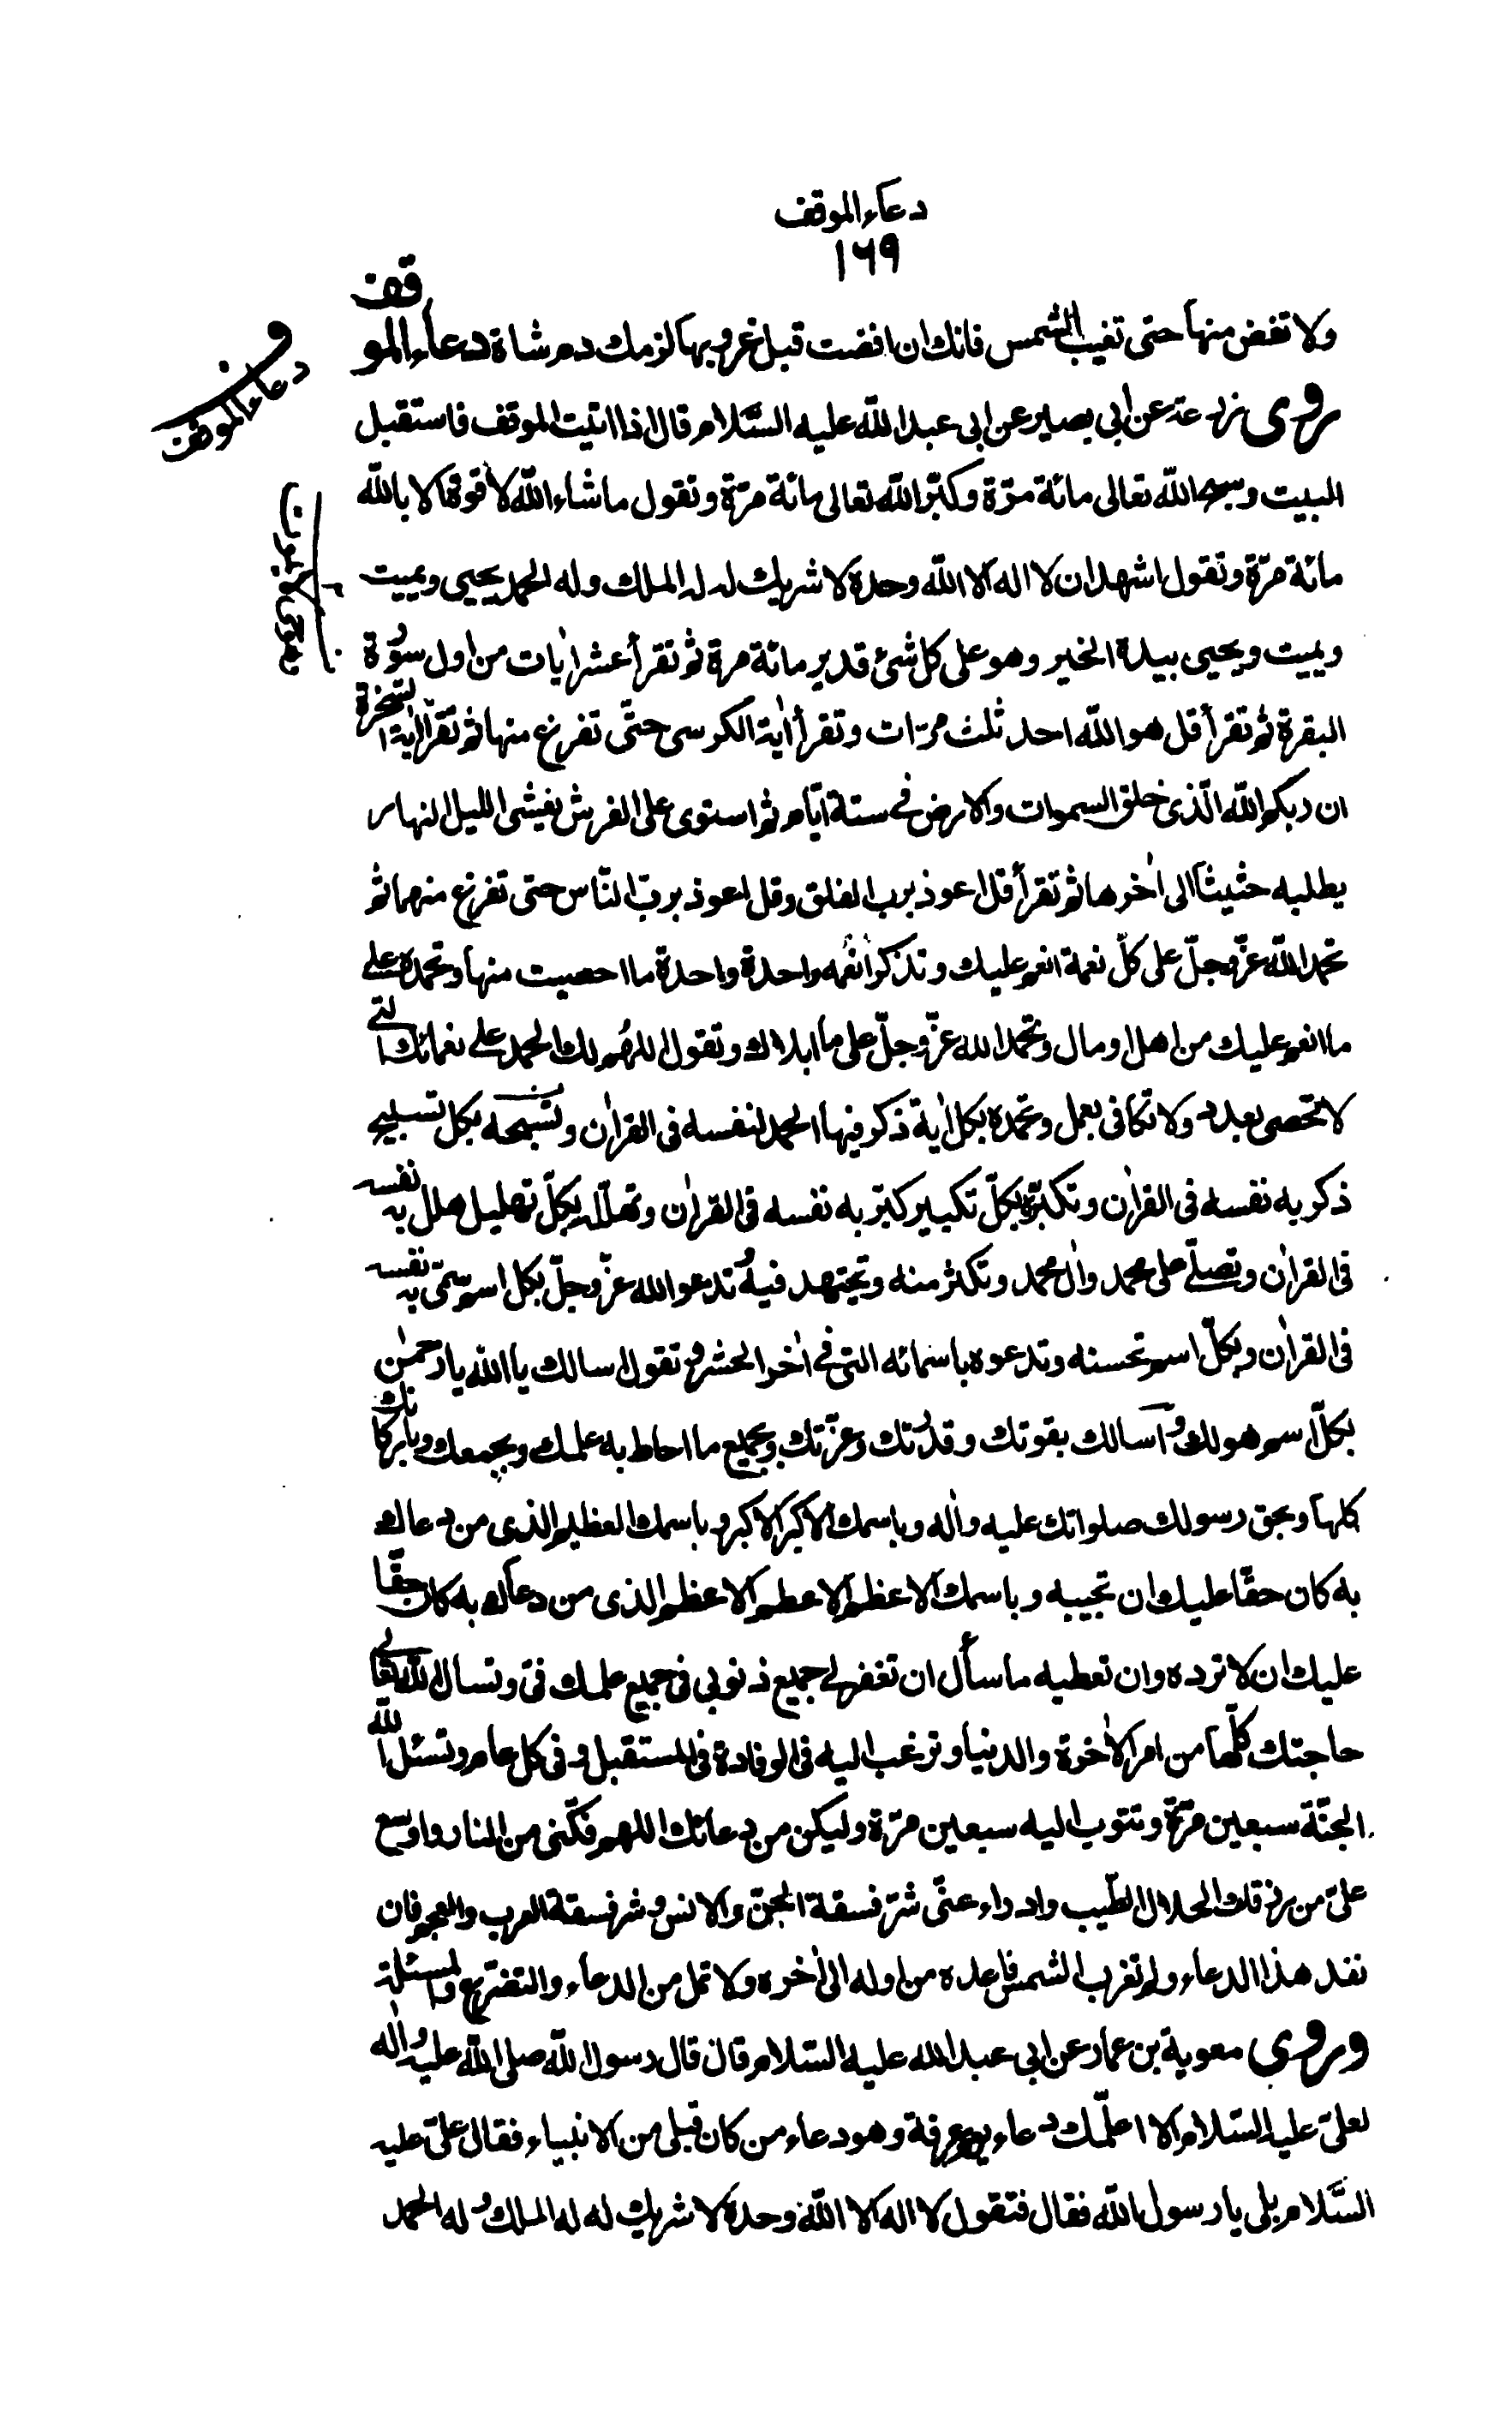 دعاء الموقف
۱۶۹
ولا تفض منها حتى تغيب الشمس فانك ان افضت قبل غروبها لزمك دم شاة دعاء الموقف
دعاء الموقف
روى زرعة عن ابى بصير عن ابى عبد الله عليه السّلام قال اذا اتيت الموقف فاستقبل
البيت وسبح الله تعالى مائة مرّة وكبّر الله تعالى مائة مرّة وتقول ما شاء الله لا قوة الا بالله
مائة مرّة وتقول اشهد ان لا اله الا الله وحده لا شريك له له الملك وله الحمد يحيى ويميت
ويميت ويحيى بيده الخير وهو على كل شئ قدير مائة مرة ثم تقرأ عشر ايات من اول سورة
البقرة ثم تقرأ قل هو الله احد ثلث مرّات وتقرأ اية الكرسى حتّى تفرغ منها ثم تقرأ اية السخرة
ان ربكم الله الّذى خلق السموات والارض فى ستة ايّام ثم استوى على العرش يغشى الليل النهار
يطلبه حثيثا الى اخرها ثم تقرأ قل اعوذ برب الفلق وقل اعوذ بربّ النّاس حتى تفرغ منهما ثم
تحمد الله عزّ وجلّ على كلّ نعمة انعم عليك وتذكر انعمه واحدة واحدة ما احصيت منها وتحمده على
ما انعم عليك من اهل او مال وتحمد الله عزّ وجلّ على ما ابلاك وتقول اللهم لك الحمد على نعمائك التى
لا تحصى بعدد ولا تكافى بعمل وتحمده بكل اية ذكر فيها الحمد لنفسه فى القران وتسبّحه بكل تسبيح
ذكر به نفسه فى القران وتكبّره بكلّ تكبير كبّر به نفسه فى القران وتهلّله بكلّ تهليل هلل به نفسه
فى القران وتصلّى على محمد وال محمد وتكثر منه وتجتهد فيه وتدعو الله عزّ وجلّ بكل اسم سمّى به نفسه
فى القران وبكلّ اسم تحسنه وتدعوه باسمائه التى فى اخر الحشر وتقول اسالك يا الله يا رحمن
بكلّ اسم هو لك واسالك بقوتك وقدرتك وعزّتك وبجميع ما احاط به علمك وبجمعك وباركانك
كلها وبحق رسولك صلواتك عليه واله وباسمك الاكبر الاكبر وباسمك العظيم الذى من دعاك
به كان حقّا عليك ان تجيبه وباسمك الاعظم الاعظم الاعظم الذى من دعاك به كان حقّا
عليك ان لا ترده وان تعطيه ما سأل ان تغفر لى جميع ذنوبى فى جميع علمك فىّ وتسال الله تعالى
حاجتك كلّها من امر الاخرة والدنيا وترغب اليه فى الوفادة فى المستقبل وفى كل عام وتسئل الله
الجنّة سبعين مرّة وتتوب اليه سبعين مرّة وليكن من دعائك اللهم فكّنى من النار واوسع
علىّ من رزقك الحلال الطّيب وادراء عنّى شرّ فسقة الجنّ والانس وشر فسقة العرب والعجم فان
نفد هذا الدعاء ولم تغرب الشمس فاعده من اوله الى اخره ولا تمل من الدعاء والتضرّع والمسئلة
وروى معوية بن عمار عن ابى عبد الله عليه السّلام قال قال رسول الله صلى الله عليه واله
لعلىّ عليه السّلام الا اعلّمك دعاء يوم عرفة وهو دعاء من كان قبلى من الانبياء فقال علىّ عليه
السّلام بلى يا رسول الله فقال فتقول لا اله الا الله وحده لا شريك له له الملك وله الحمد